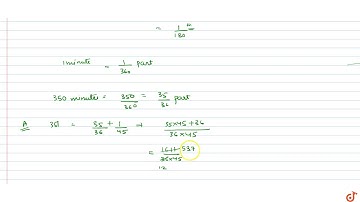 = 1/180
1 minute = 1/360 part
350 minute = 350/360 = 35/36 part
A 351 = 35/36 + 1/45 = 35×45+36/36×45
= 1611 537/36×45
12